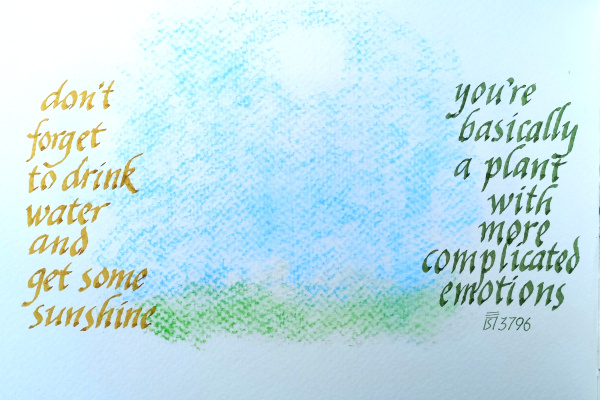 don't
forget
to drink
water
and
get some
sunshine
you're
basically
a plant
with
more
complicated
emotions
3796